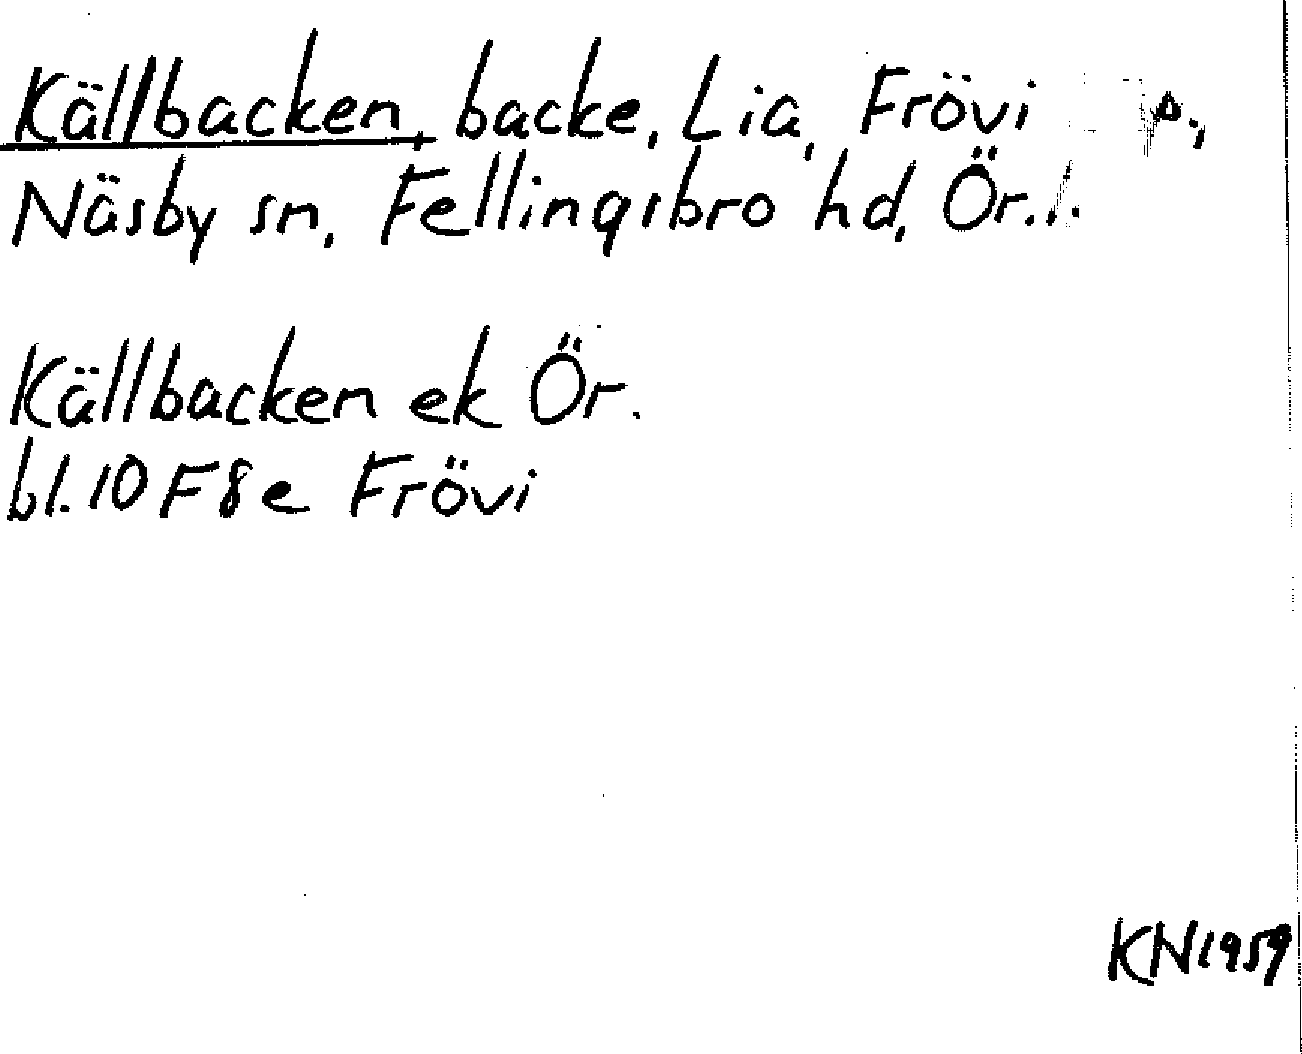 Källbacken, backe, Lia, Frövi
Näsby sn, Fellingsbro hd, Ör.l.
Källbacken ek Ör.
bl. 10 F 8 e Frövi
KN 1959